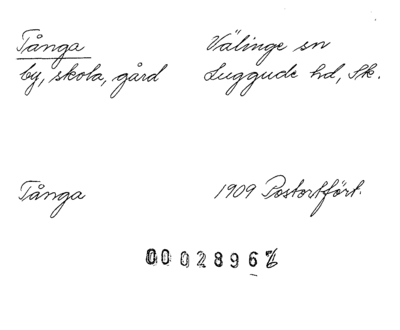 Tånga Välinge sn
by, skola, gård Luggude hd, Sk.
Tånga 1909 Postortfört.